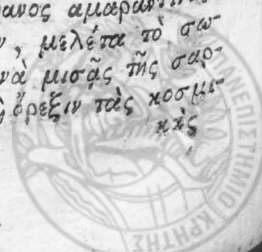 ανος αμαραντι
, μελέτα τὸ σω-
νὰ μισᾷς τῆς σαρ-
ὄρεξιν τὰς κοσμι-
κὰς
ΠΑΝΕΠΙΣΤΗΜΙΟ ΚΡΗΤΗΣ